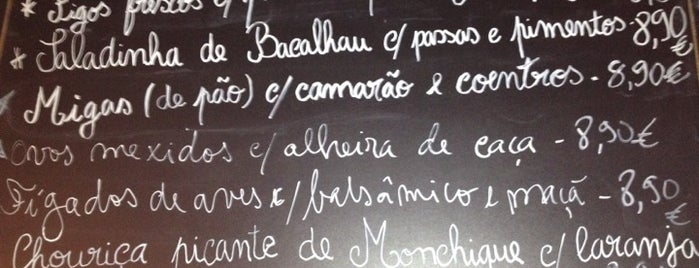 * Figos frescos c/
* Saladinha de Bacalhau c/ passas e pimentos - 8,90
* Migas (de pão) c/ camarão e coentros - 8,90€
Ovos mexidos c/ alheira de caça - 8,90€
Fígados de aves c/ balsâmico e maçã - 8,90 €
Chouriça picante de Monchique c/ laranja